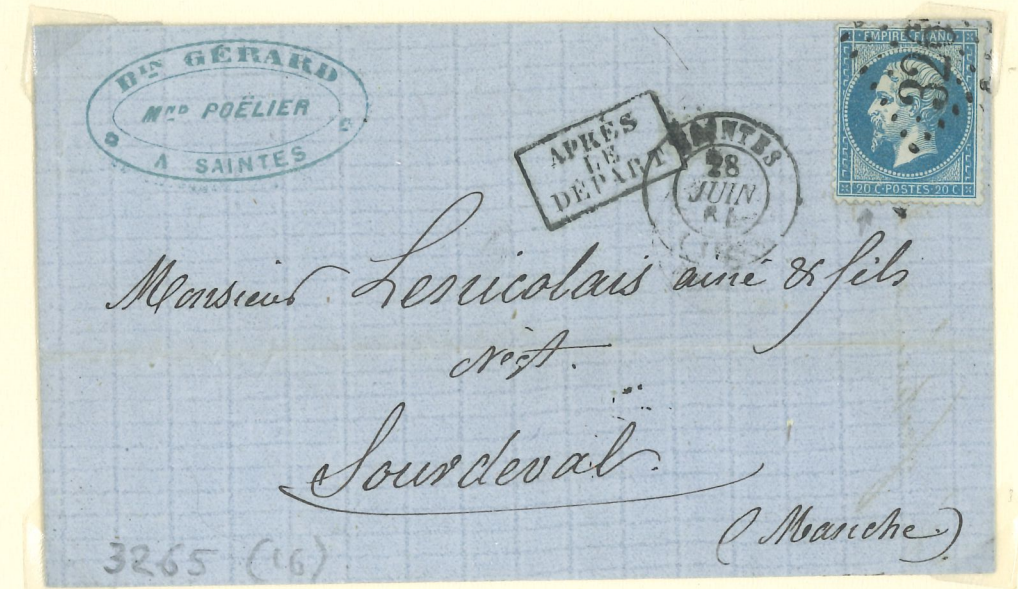 Bin GÉRARD
Md POËLIER
A SAINTES
APRÈS
LE
DEPART
SAINTES
28
JUIN
EMPIRE FRANC
20 C·POSTES·20 C
Monsieur Lenicolais ainé & fils
Négt.
Sourdeval.
(Manche)
3265 (16)